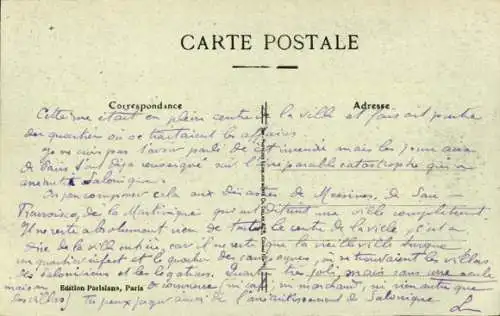 CARTE POSTALE
Correspondance Adresse
Cette rue était en plein centre de la ville et faisait partie
des quartiers où se traitaient les affaires.
Je ne crois pas t'avoir parlé de cet incendie mais les journaux
de Paris t'ont déjà renseigné sur l'irréparable catastrophe qui a
anéanti Salonique.
On peut comparer cela aux désastres de Messine, de San
Francisco, de la Martinique qui ont détruit une ville complètement.
Il ne reste absolument rien de tout le centre de la ville, c'est à
dire de la ville entière, car il ne reste que la vieille ville turque
un quartier infect et le quartier des campagnes, où se trouvaient les villas
des Saloniciens et les légations. Quartier très joli, mais sans une seule
maison de commerce (ni café, ni marchand, ni rien autre que
les villas) Tu peux juger ainsi de l'anéantissement de Salonique
Edition Parisiana, Paris